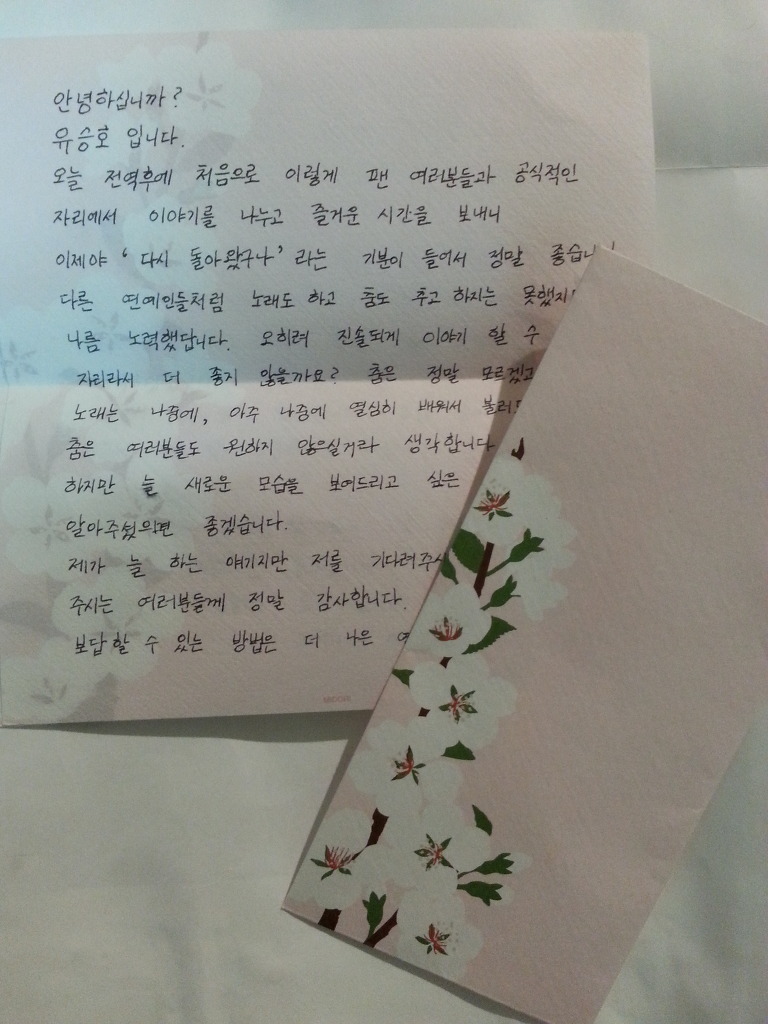 안녕하십니까?
유승호 입니다.
오늘 전역후에 처음으로 이렇게 팬 여러분들과 공식적인
자리에서 이야기를 나누고 즐거운 시간을 보내니
이제야 '다시 돌아왔구나' 라는 기분이 들어서 정말
다른 연예인들처럼 노래도 하고 춤도 추고 하지는
나름 노력했답니다. 오히려 진솔되게 이야기 할 수
자리라서 더 좋지 않을까요? 춤은 정말
노래는 나중에, 아주 나중에 열심히 배워서
춤은 여러분들도 원하지 않으실거라 생각합니다
하지만 늘 새로운 모습을 보여드리고 싶은
알아주셨으면 좋겠습니다.
제가 늘 하는 얘기지만 저를
주시는 여러분들께 정말 감사합니다.
보답할 수 있는 방법은 더 나은